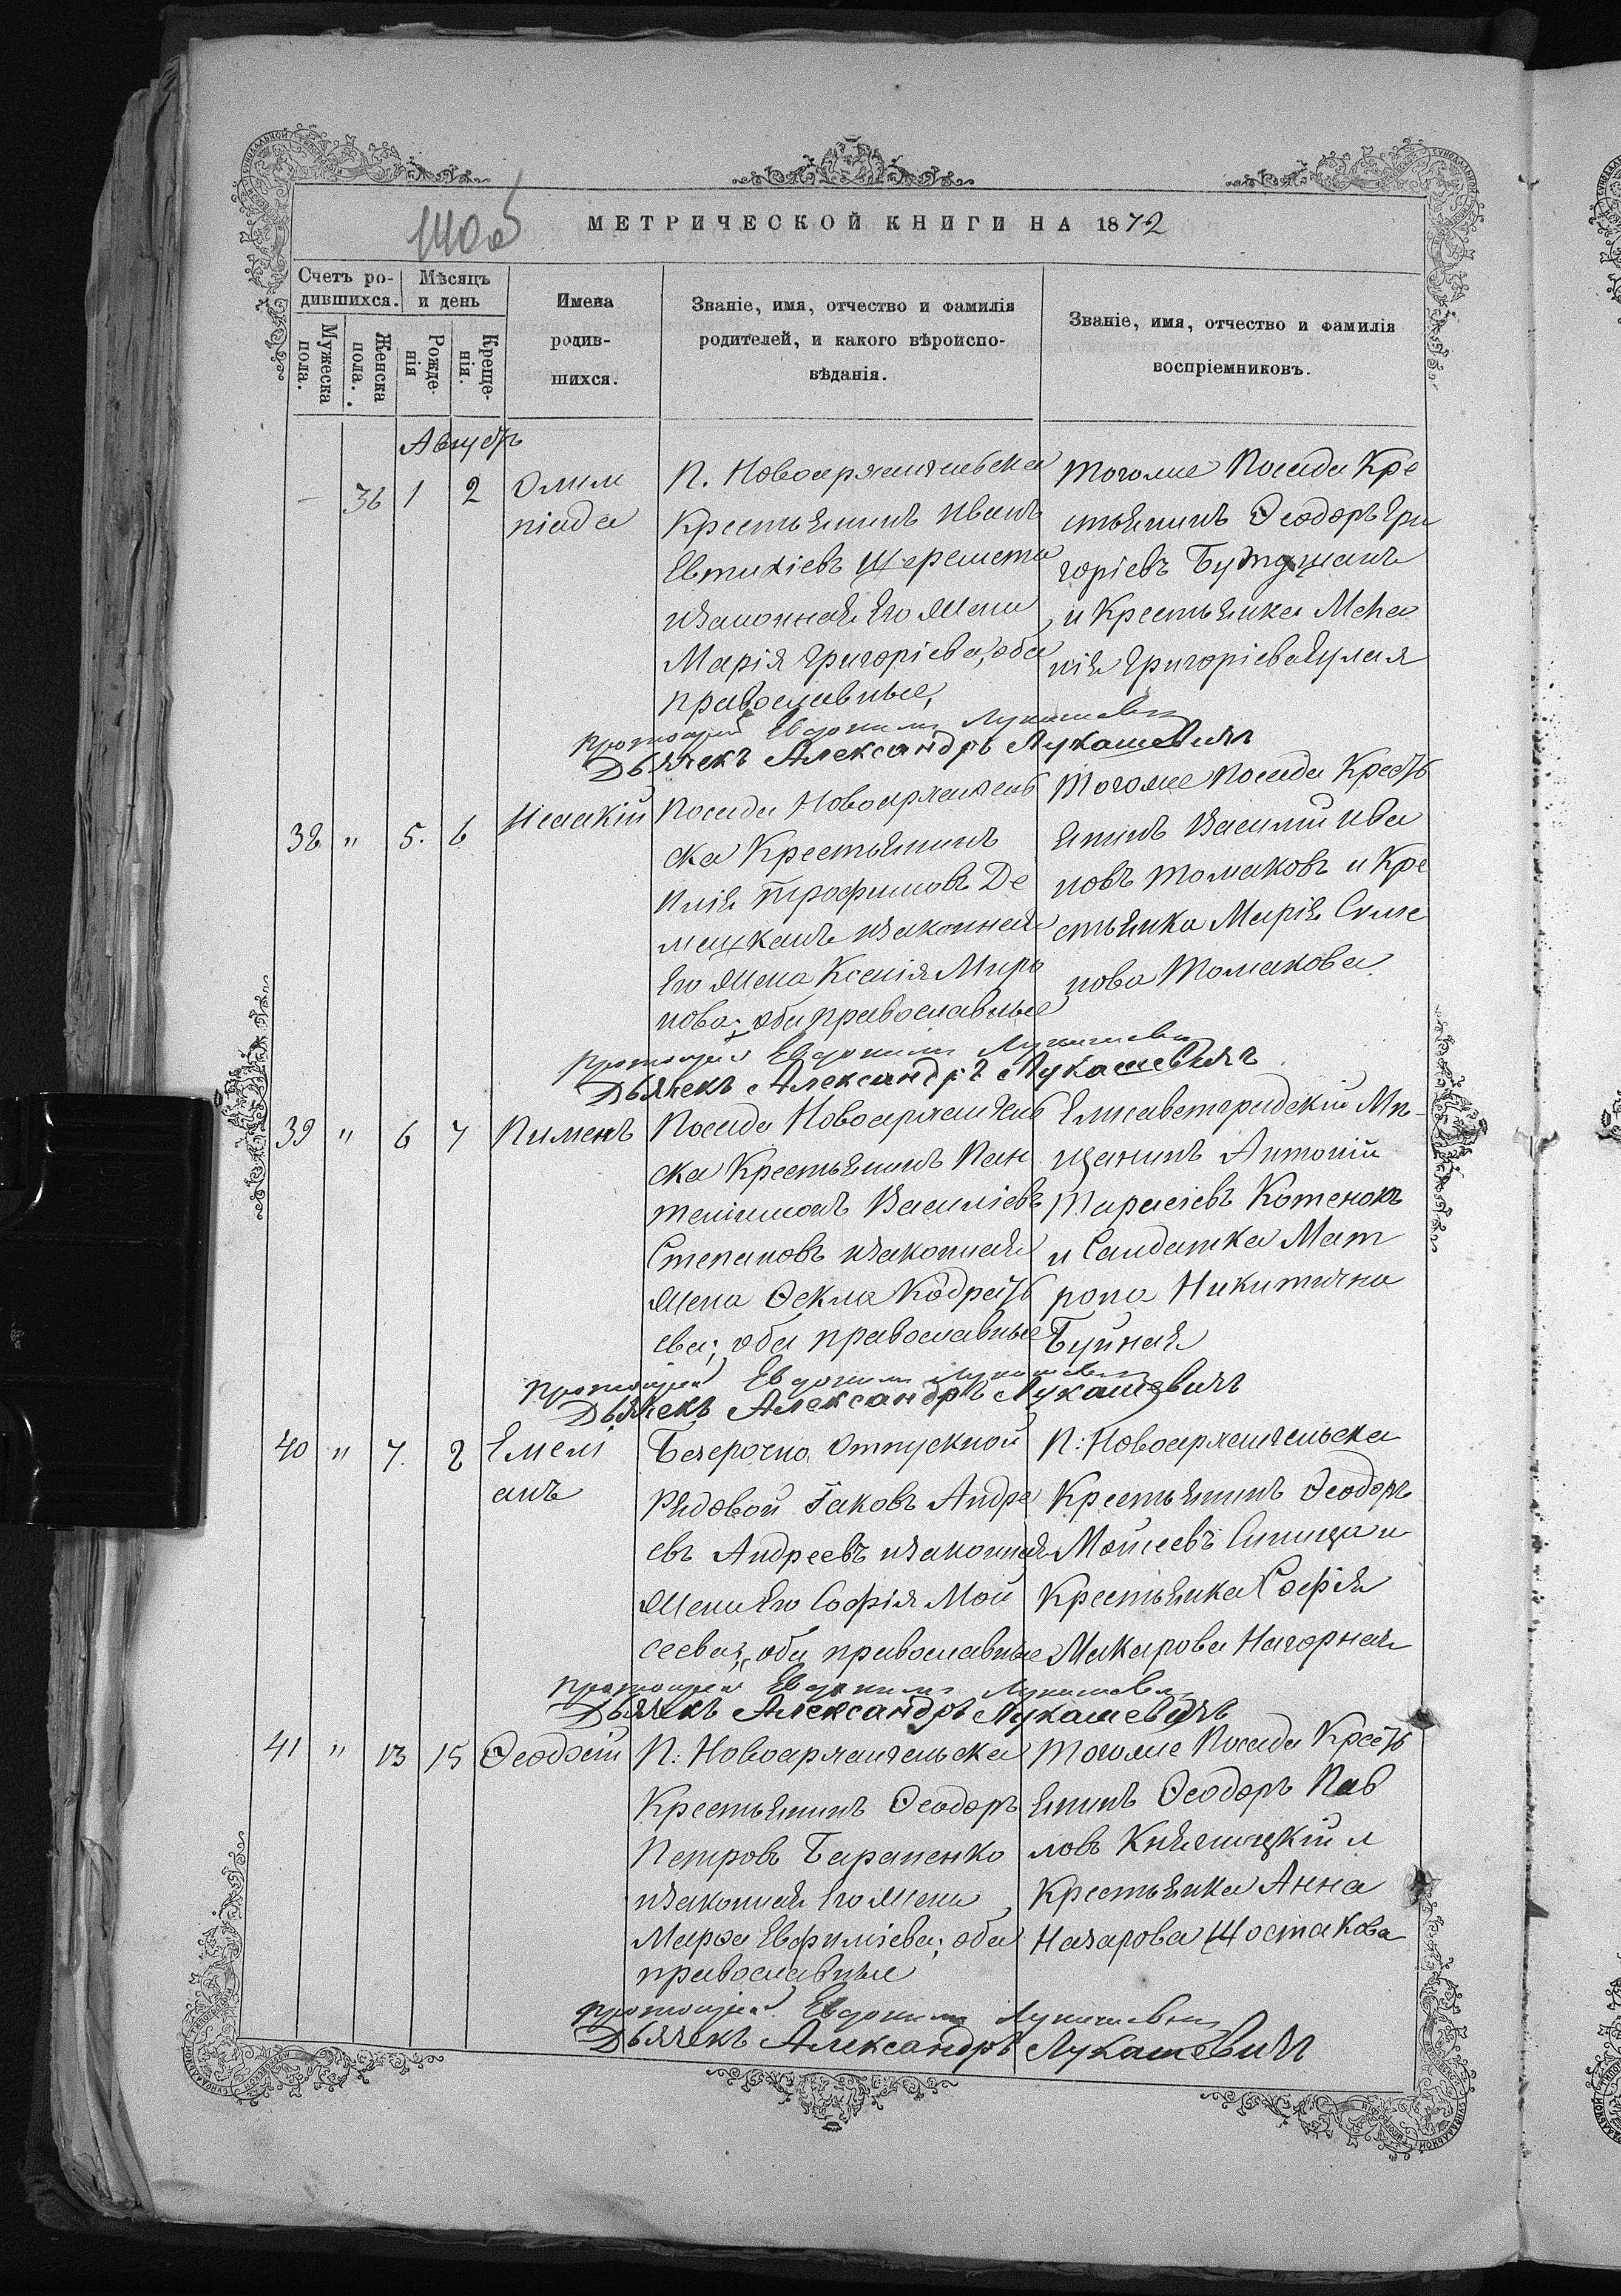 140об
МЕТРИЧЕСКОЙ КНИГИ НА 1872
Счетъ родившихся.
Мѣсяцъ и день
Мужеска пола.
Женска пола.
Рожденія
Крещенія.
Имена
родив-
шихся.
Званіе, имя, отчество и фамилія
родителей, и какого вѣроиспо-
вѣданія.
Званіе, имя, отчество и фамилія
воспріемниковъ.
Августъ
— 36 1 2
Олим
піада
П. Новоархангельска
Крестьянинъ Иванъ
Евтихіевъ Шеремета
изаконная Его жена
Марія Григоріева, оба
православные,
Тогоже Посада Кре
стьянинъ Ѳеодоръ Гри
горіевъ
и Крестьянка Мела
нія Григоріева
Протоіерей Евдокимъ Лукашевичъ
Дьячекъ Александръ Лукашевичъ
38 " 5. 6
Исаакій
Посада Новоархангель
ска Крестьянинъ
Илія Трофимовъ Де
изаконная
Его жена Ксенія Миро
нова; оба православные
Тогоже Посада Кресть
янинъ Василій Ива
новъ Томаковъ и Кре
стьянка Марія Симе
нова Томакова
Протоіерей Евдокимъ Лукашевичъ
Дьячекъ Александръ Лукашевичъ
39 " 6 7
Пименъ
Посада Новоархангель
ска Крестьянинъ Пан
телиимонъ Василіевъ
Степановъ изаконная
жена Ѳекла Кодрать
ева; оба православные
Елисаветградскій Мѣ-
щанинъ Антоній
Тарасіевъ Котенокъ
и Салдатка Мат
рона Никитична
Буйная
Протоіерей Евдокимъ Лукашевичъ
Дьячекъ Александръ Лукашевичъ
40 " 7. 8
Емелі
анъ
Безсрочно Отпускной
Рядовой Іаковъ Андре
евъ Андреевъ изаконная
жена Его Софія Мой
сеева; оба православные
П: Новоархангельска
Крестьянинъ Ѳеодоръ
Мойсеевъ Синица и
Крестьянка Софія
Макарова Нагорная
Протоіерей Евдокимъ Лукашевичъ
Дьячекъ Александръ Лукашевичъ
41 " 13 15
Ѳеодосій
П: Новоархангельска
Крестьянинъ Ѳеодоръ
Петровъ Бараненко
изаконная Его жена
Марѳа Евфиміева; оба
православные
Тогоже Посада Кресть
янинъ Ѳеодоръ Пав
ловъ Княжицкій и
Крестьянка Анна
Назарова Шостакова
Протоіерей Евдокимъ Лукашевичъ
Дьячекъ Александръ Лукашевичъ